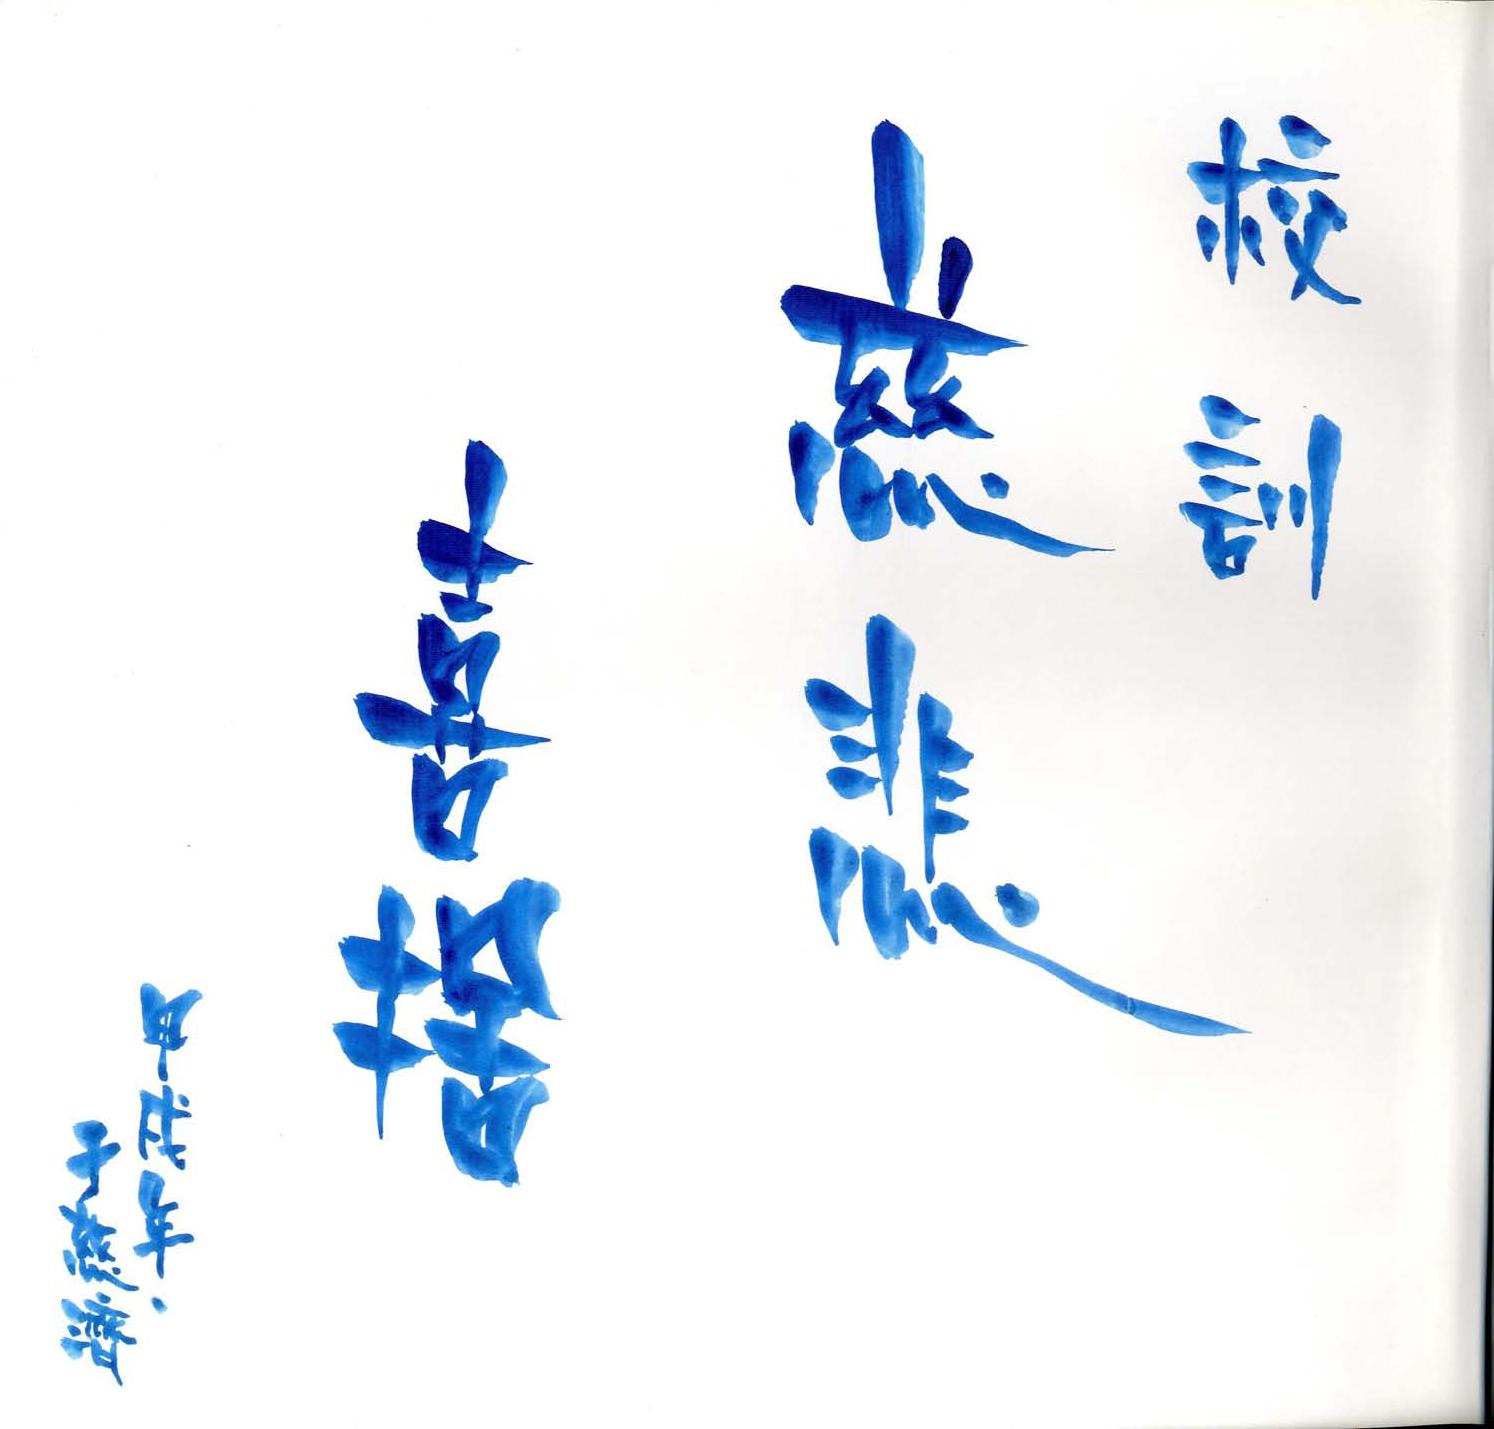 校訓
慈悲
喜捨
甲戌年
于慈濟